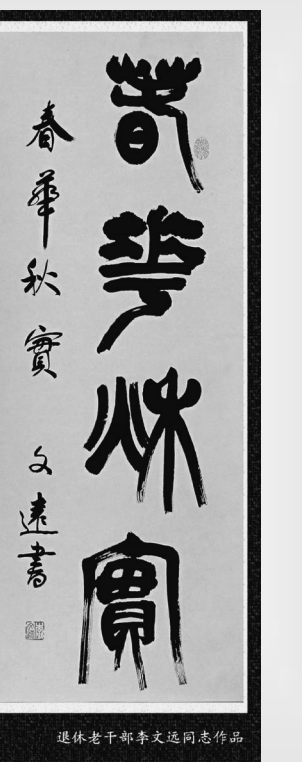 春華秋實
春華秋實
文遠書
退休老干部李文远同志作品